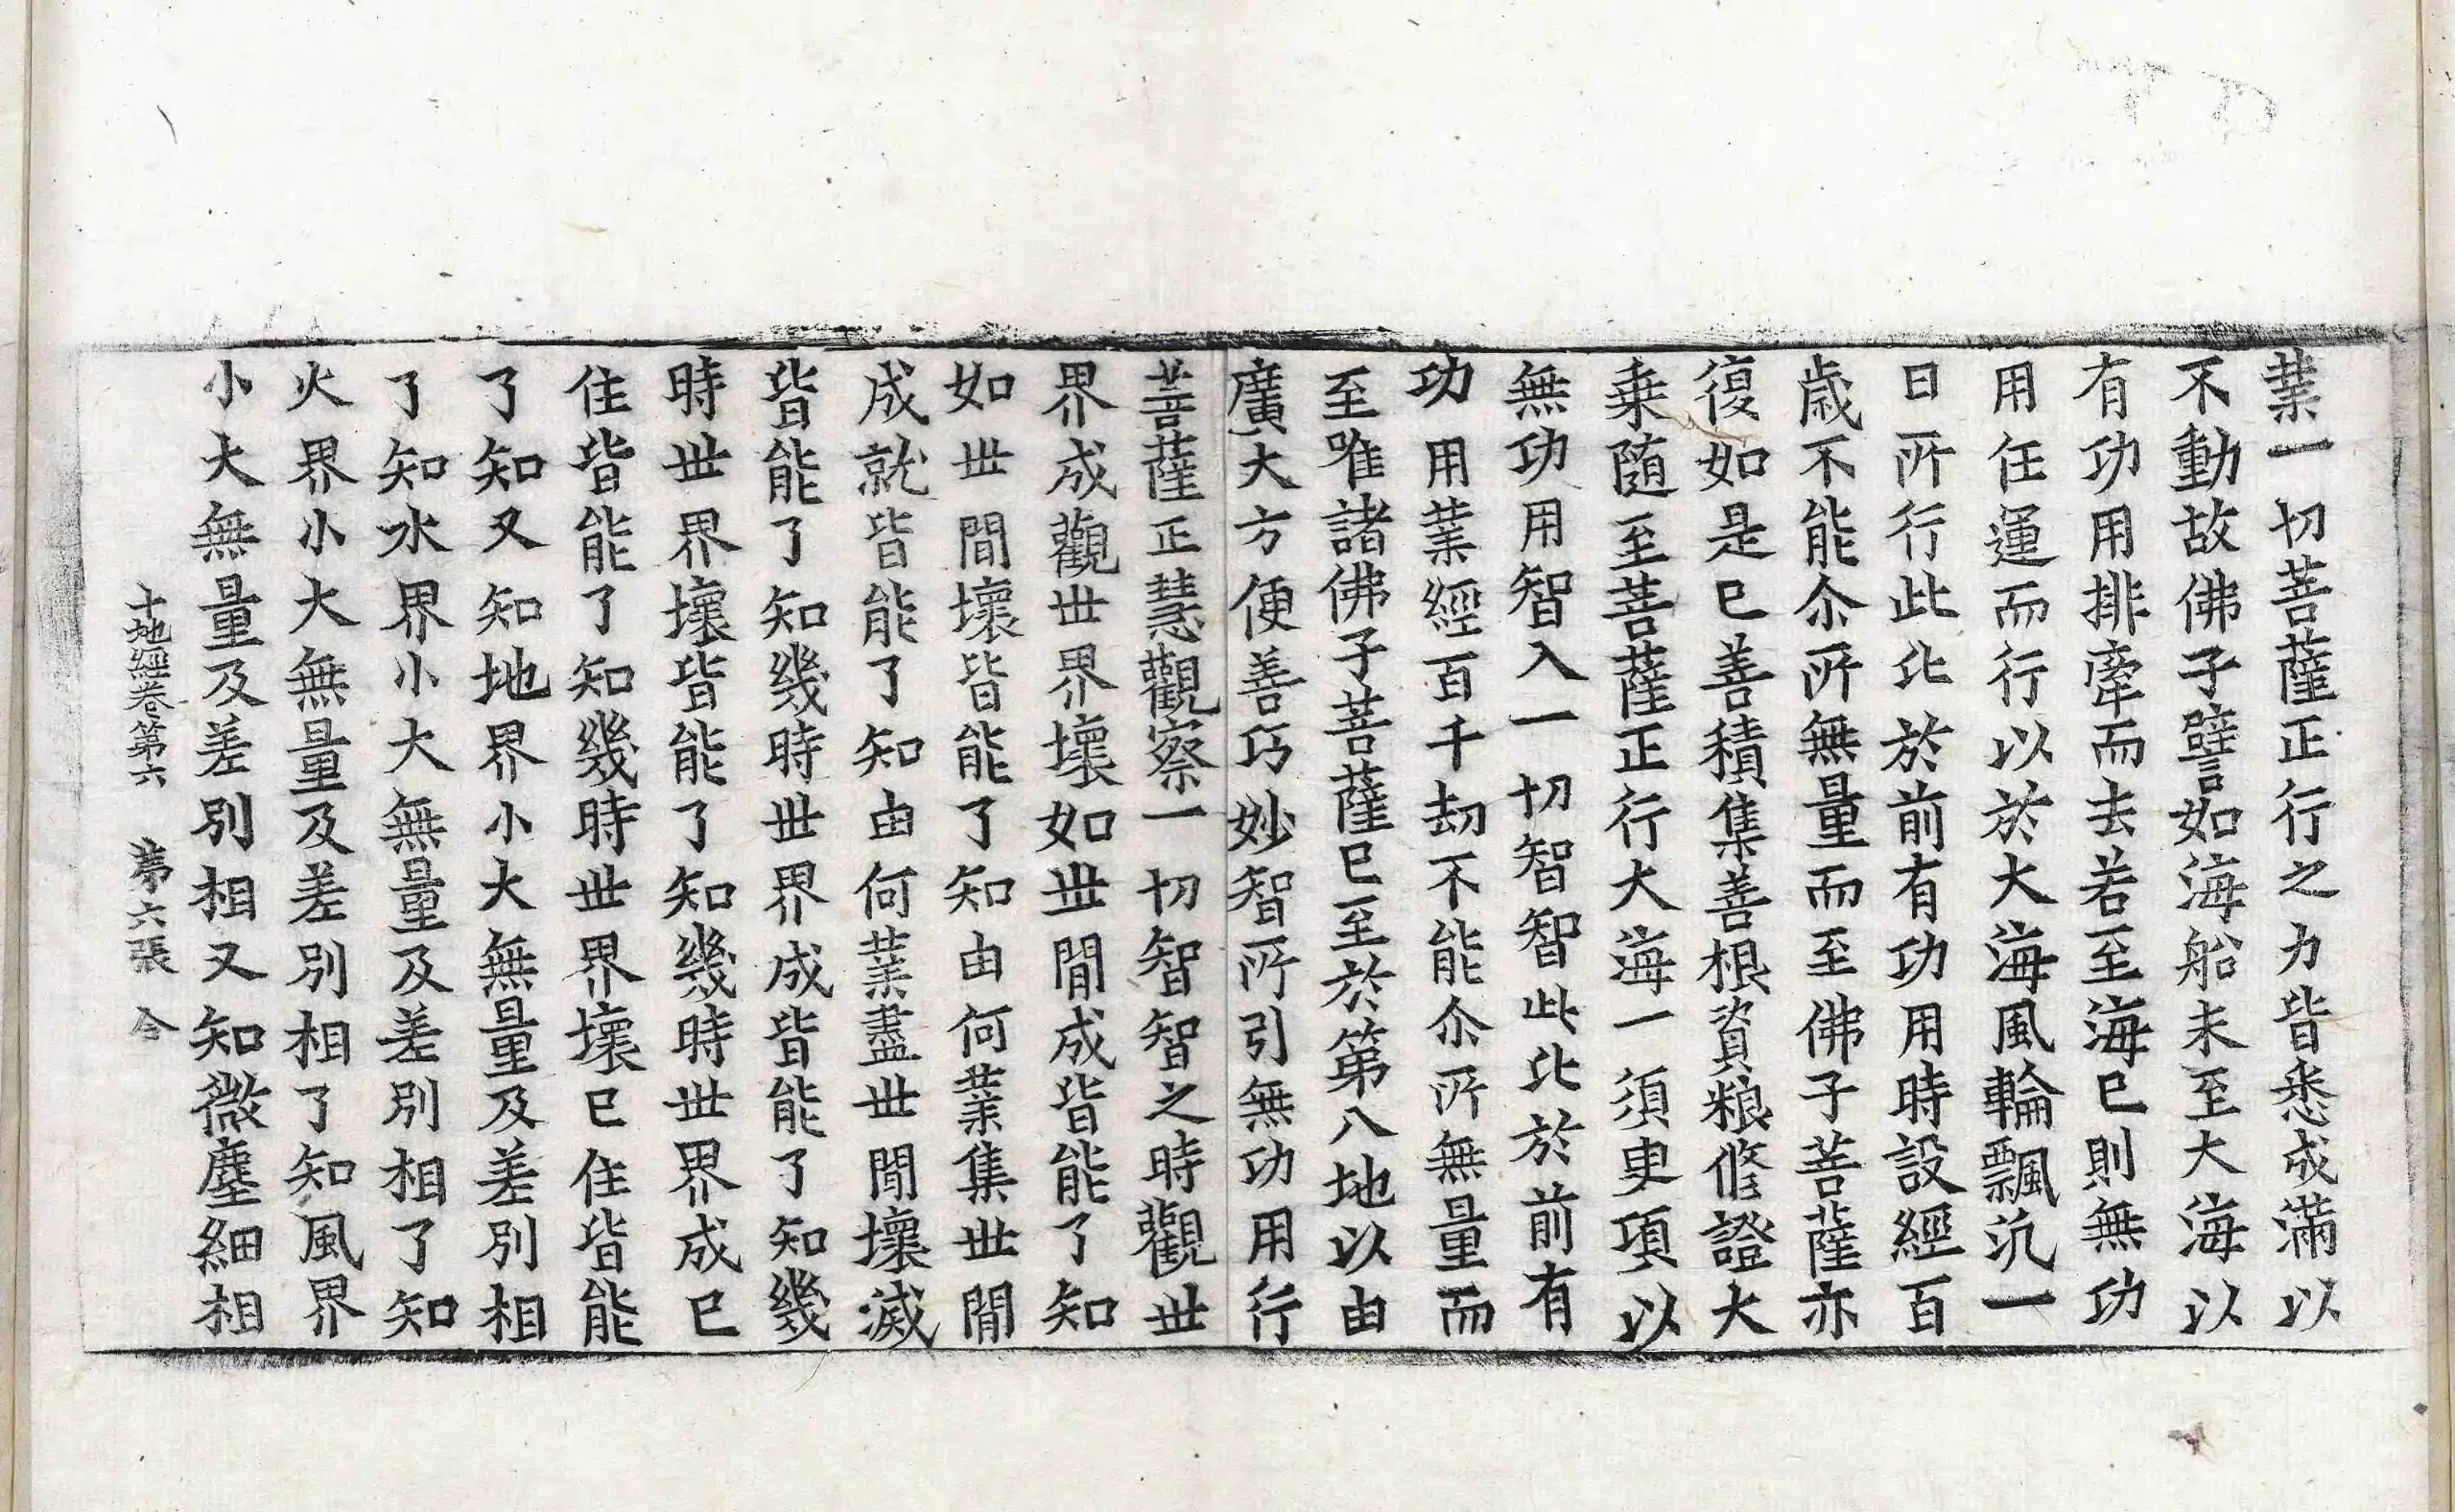 業一切菩薩正行之力皆悉成滿以
不動故佛子譬如海船未至大海以
有功用排牽而去若至海已則無功
用任運而行以於大海風輪飄汎一
日所行此比於前有功用時設經百
歲不能尒所無量而至佛子菩薩亦
復如是已善積集善根資粮修證大
乗随至菩薩正行大海一須臾項以
無功用智入一切智智此比於前有
功用業經百千劫不能尒所無量而
至唯諸佛子菩薩已至於第八地以由
廣大方便善巧妙智所引無功用行
菩薩正慧觀察一切智智之時觀世
界成觀世界壞如世間成皆能了知
如世間壞皆能了知由何業集世間
成就皆能了知由何業盡世間壞滅
皆能了知幾時世界成皆能了知幾
時世界壞皆能了知幾時世界成已
住皆能了知幾時世界壞已住皆能
了知又知地界小大無量及差別相
了知水界小大無量及差別相了知
火界小大無量及差別相了知風界
小大無量及差別相又知微塵細相
十地經卷第六 第六張 令